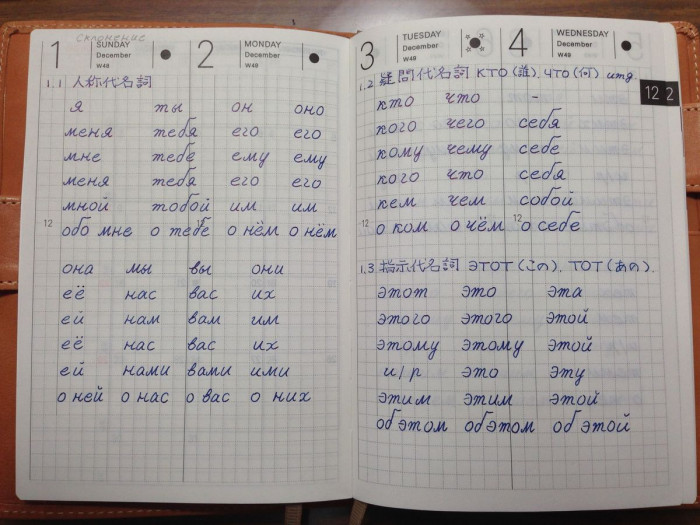 Склонение
1 SUNDAY December W49
2 MONDAY December W49
1.1 人称代名詞
я ты он оно
меня тебя его его
мне тебе ему ему
меня тебя его его
мной тобой им им
12 12
обо мне о тебе о нём о нём
она мы вы они
её нас вас их
ей нам вам им
её нас вас их
ей нами вами ими
о ней о нас о вас о них
3 TUESDAY December W49
4 WEDNESDAY December W49
1.2 疑問代名詞 КТО (誰). ЧТО (何) итд.
12 2
кто что -
кого чего себя
кому чему себе
кого что себя
кем чем собой
12 12
о ком о чём о себе
1.3 指示代名詞 ЭТОТ (この). ТОТ (あの).
этот это эта
этого этого этой
этому этому этой
и/р это эту
этим этим этой
об этом об этом об этой